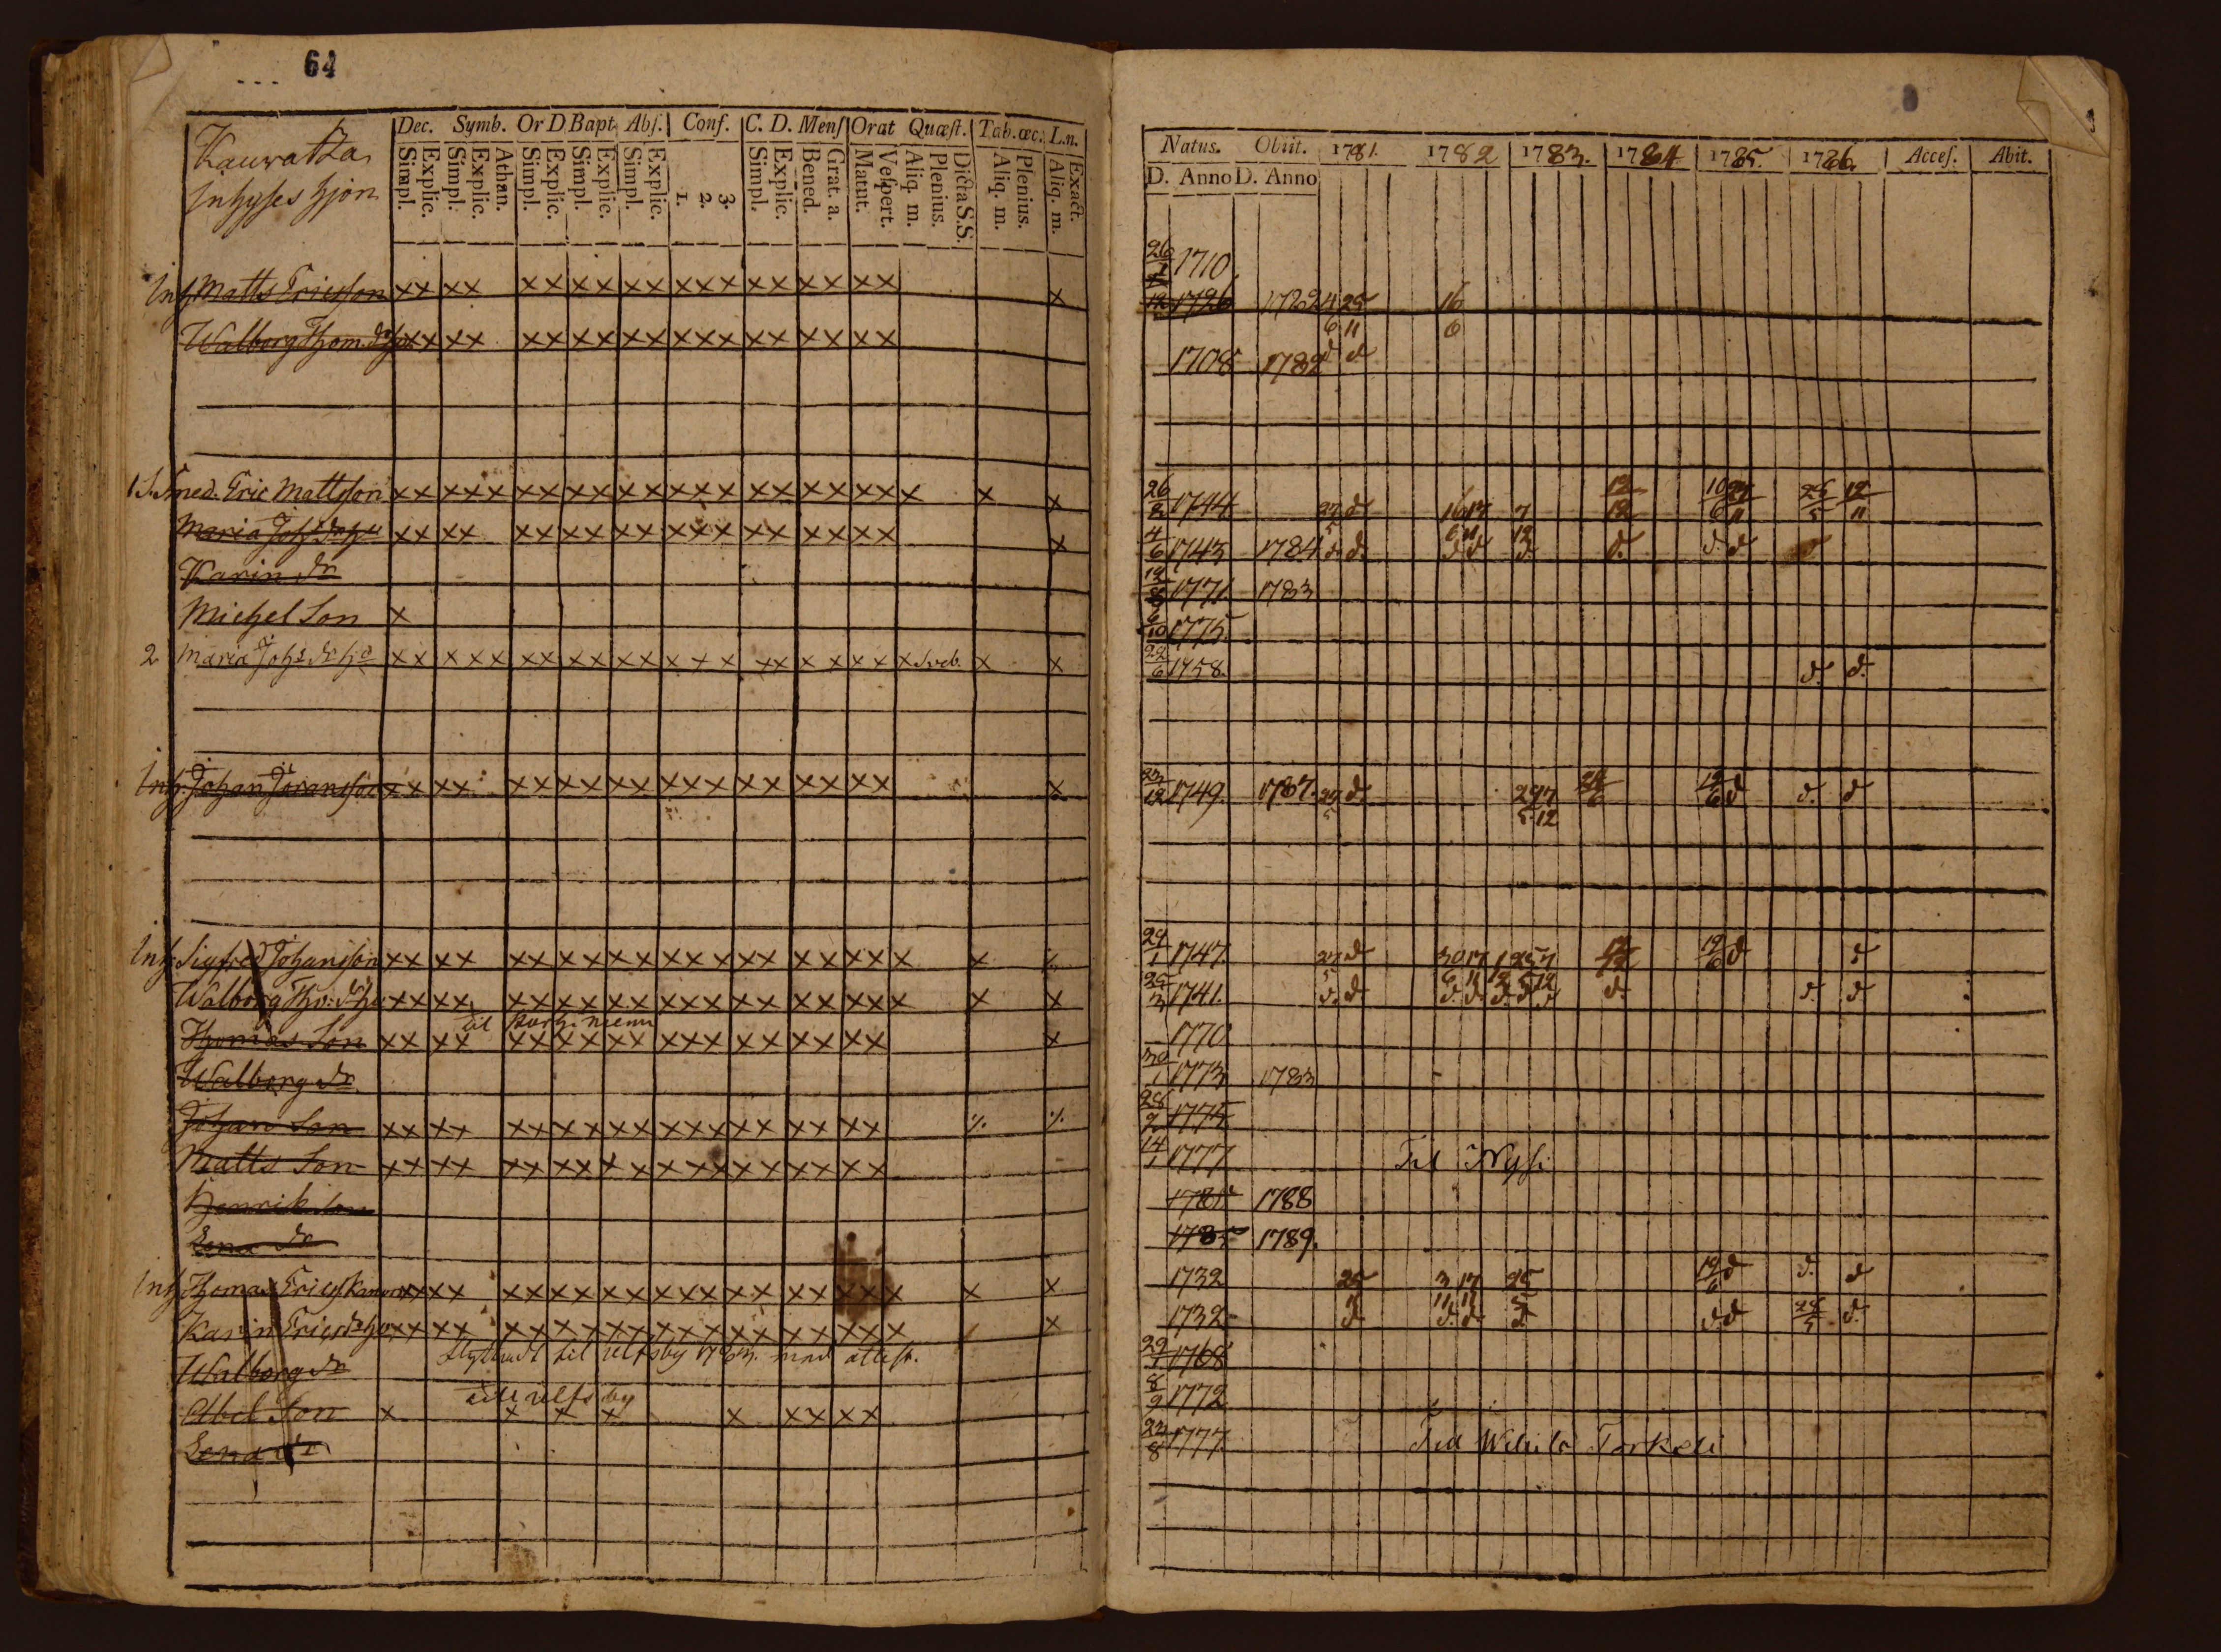 64
Kauratta
Inhyses hjon
Dec. Symb. Or D Bapt Abs. Conf. C. D. Mens Orat Quæst. Tab. œc. L.n.
Simpl. Explic. Simpl. Explic. Athan. Simpl. Explic. Simpl. Explic. Simpl. Explic. 1. 2. 3. Simpl. Explic. Bened. Grat. a. Matut. Vespert. Aliq. m. Plenius. Dicta S.S. Aliq. m. Plenius. Aliq. m. Exact.
Inh Matts Ericsson xx xx xx xx xx xxx xx xx xx x
Walborg Thom. dr hu xx xx xx xx xx xxx xx xx xx
Smed. Eric Mattsson xx xxx xx xx xx xxx xx xx xx x x x
Maria Joh. dr hu xx xx xx xx xx xxx xx xx xx x
Karin dr
Michel Son x
2 Maria Joh: dr xx xxx xx xx xx xxx xx xx xx x Sveb. x x
Inh. Johan Göransson xx xx xx xx xx xxx xx xx xx x
Inh Sigfred Johansson xx xx xx xx xx xxx xx xx xx x x
Walborg Tho: dr hu xx xx xx xx xx xxx xx xx xx x x x
til
Thomas Son xx xx xx xx xx xxx xx xx xx x
Walborg dr
Johan Son xx xx xx xx xx xxx xx xx xx
Matts Son xx xx xx xx xx xxx xx xx xx
Henrik Son
Lena dr
Inh Thomas Ericss xx xx xx xx xx xxx xx xx xx x x x
Karin Ericsdr hu xx xx xx xx xx xxx xx xx xx x x
Flyttadt til ulfsby med attest.
Walborg dr
till ulfsby
Abel Son x x x x x xx xx
Lena dr
Natus. Obiit. 1781. 1782 1783. 1784 1785. 1786. Acces. Abit.
D. Anno D. Anno
26 1710
12 1726 1782 4 25 16
6 11 6
1708 1782 d d
26/8 1744 27/5 d 16/6 17/11 7/12 12/12 10/6 27/11 25/5 12/11
4/6 1743 1784 d. d. d d d. d. d. d d
12 1771 1783
6/10 1775
22/6 1758. d. d.
23/12 1749. 1787. 27/5 d. 29/5 7/12 24/6 12/6 d d. d
24/1 1747 27/5 d 30/6 17/11 25/5 7/12 12/6 d d
25/3 1741. d. d d. d. d. d. d d. d. d
1770
30/1 1773 1783
28/2 1775
14/1 1777 Til Nysi
1781 1788
1785 1789.
1732 25/11 3/11 17/11 25/5 12/6 d d. d
1732 d d. d. d d. d 28/5 d.
29/1 1768
8/9 1772
22/8 1777. Till Wilula Torkeli